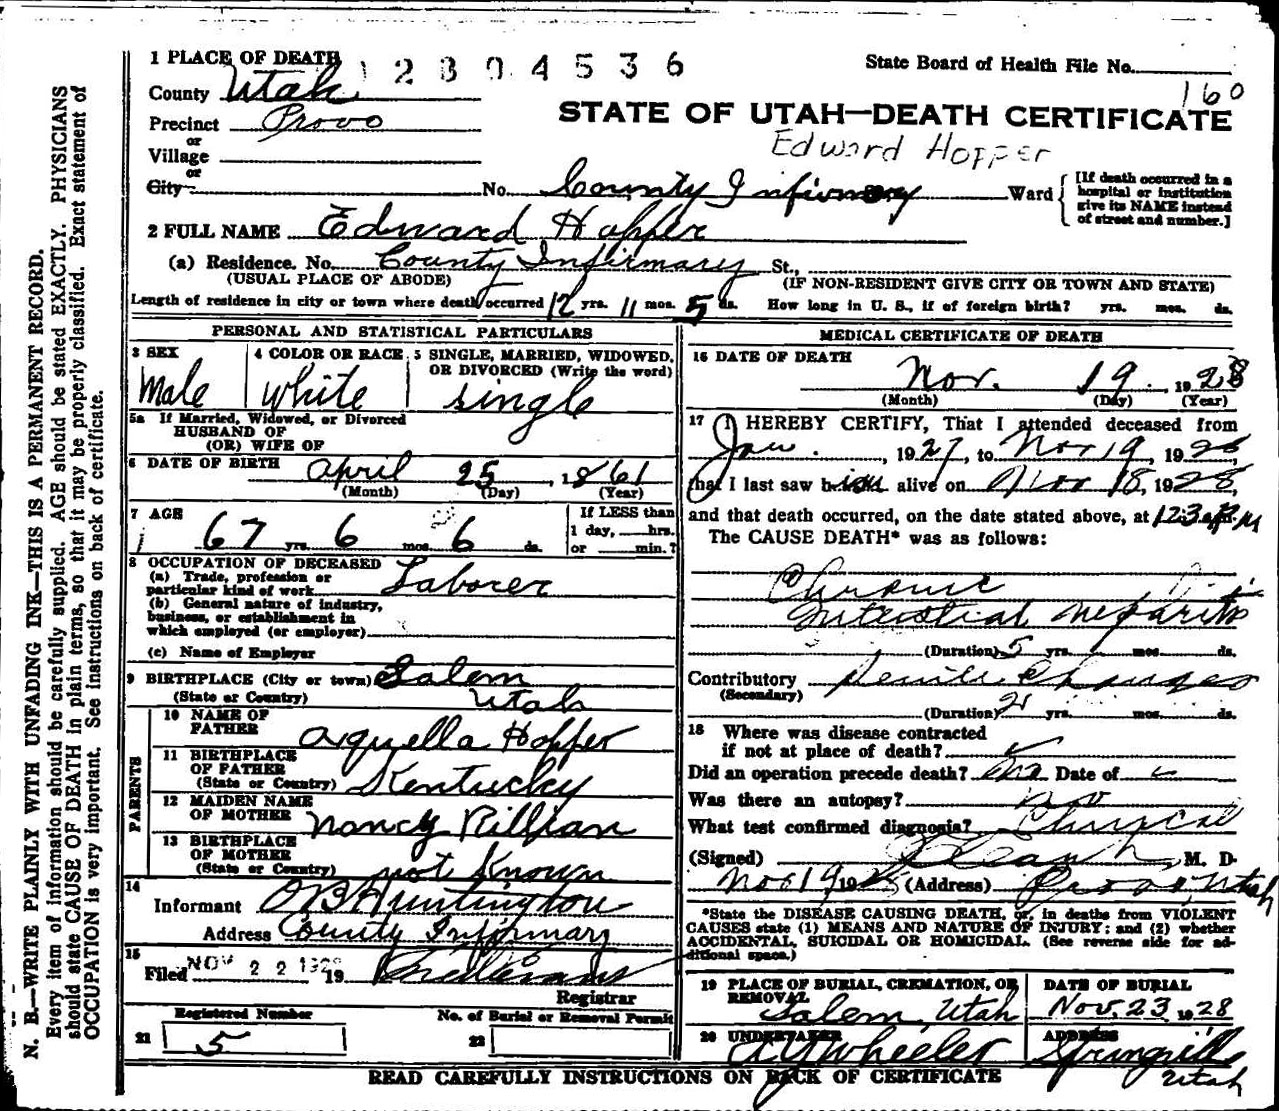 1 PLACE OF DEATH
12804536
State Board of Health File No.
160
County Utah
STATE OF UTAH—DEATH CERTIFICATE
Precinct Provo
Edward Hopper
or
Village
or
City No. County Infirmary Ward
[If death occurred in a
hospital or institution
give its NAME instead
of street and number.]
2 FULL NAME Edward Hopper
(a) Residence. No. County Infirmary St.,
(USUAL PLACE OF ABODE) (IF NON-RESIDENT GIVE CITY OR TOWN AND STATE)
Length of residence in city or town where death occurred 12 yrs. 11 mos. 5 ds. How long in U. S., if of foreign birth? yrs. mos. ds.
PERSONAL AND STATISTICAL PARTICULARS
3 SEX
male
4 COLOR OR RACE
white
5 SINGLE, MARRIED, WIDOWED,
OR DIVORCED (Write the word)
single
5a If Married, Widowed, or Divorced
HUSBAND OF
(OR) WIFE OF
6 DATE OF BIRTH April 25, 1861
(Month) (Day) (Year)
7 AGE
67 yrs. 6 mos. 6 ds.
If LESS than
1 day, hrs.
or min.?
8 OCCUPATION OF DECEASED
(a) Trade, profession or
particular kind of work Laborer
(b) General nature of industry,
business, or establishment in
which employed (or employer)
(c) Name of Employer
9 BIRTHPLACE (City or town) Salem
(State or Country) Utah
PARENTS
10 NAME OF
FATHER Aquella Hopper
11 BIRTHPLACE
OF FATHER
(State or Country) Kentucky
12 MAIDEN NAME
OF MOTHER Nancy Rillian
13 BIRTHPLACE
OF MOTHER
(State or Country) not Known
14
Informant OB Huntington
Address County Infirmary
15
Filed NOV 22 1928 19
Registrar
Registered Number
21 5
No. of Burial or Removal Permit
22
MEDICAL CERTIFICATE OF DEATH
16 DATE OF DEATH
Nov. 19, 1928
(Month) (Day) (Year)
17 I HEREBY CERTIFY, That I attended deceased from
Jan., 1927, to Nov 19, 1928,
that I last saw him alive on Nov 18, 1928,
and that death occurred, on the date stated above, at 1230 P.M
The CAUSE DEATH* was as follows:
Chronic
Interstial Nephritis
(Duration) 5 yrs. mos. ds.
Contributory Senile Changes
(Secondary)
(Duration) 2 yrs. mos. ds.
18 Where was disease contracted
if not at place of death?
Did an operation precede death? no Date of
Was there an autopsy? no
What test confirmed diagnosis? Clinical
(Signed) M. D.
Nov 19 1928 (Address) Provo Utah
*State the DISEASE CAUSING DEATH, or, in deaths from VIOLENT
CAUSES state (1) MEANS AND NATURE OF INJURY; and (2) whether
ACCIDENTAL, SUICIDAL OR HOMICIDAL. (See reverse side for ad-
ditional space.)
19 PLACE OF BURIAL, CREMATION, OR
REMOVAL
Salem, Utah
DATE OF BURIAL
Nov. 23 1928
20 UNDERTAKER
A Y Wheeler
ADDRESS
Springville
Utah
READ CAREFULLY INSTRUCTIONS ON BACK OF CERTIFICATE
N. B.—WRITE PLAINLY WITH UNFADING INK—THIS IS A PERMANENT RECORD.
Every item of information should be carefully supplied. AGE should be stated EXACTLY. PHYSICIANS
should state CAUSE OF DEATH in plain terms, so that it may be properly classified. Exact statement of
OCCUPATION is very important. See instructions on back of certificate.